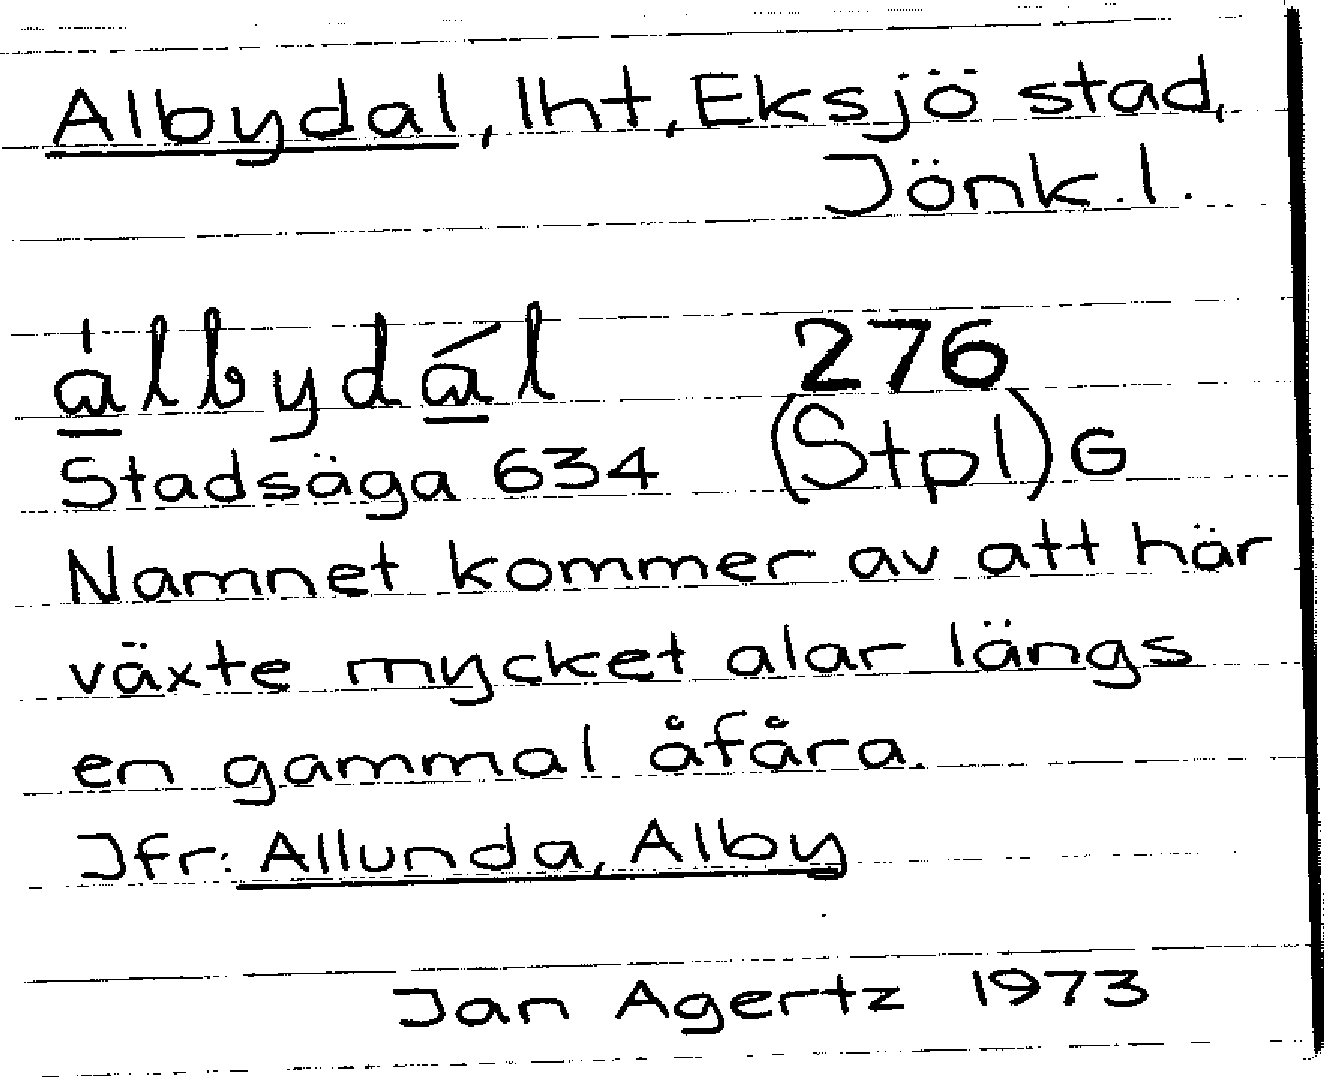 Albydal, lht, Eksjö stad,
Jönk. l.
a̲̍lbydá̲l 276
Stadsäga 634 (Stpl) G
Namnet kommer av att här
växte mycket alar längs
en gammal åfåra.
Jfr: Allunda, Alby
Jan Agertz 1973